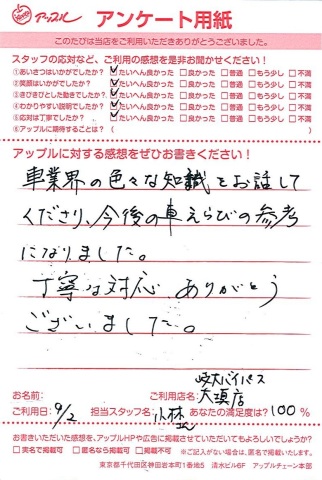 アップル アンケート用紙
このたびは当店をご利用いただきありがとうございました。
スタッフの応対など、ご利用の感想を是非お聞かせください!
①あいさつはいかがでしたか? ☑たいへん良かった □良かった □普通 □もう少し □不満
②笑顔はいかがでしたか? ☑たいへん良かった □良かった □普通 □もう少し □不満
③きびきびとした動きでしたか? ☑たいへん良かった □良かった □普通 □もう少し □不満
④わかりやすい説明でしたか? ☑たいへん良かった □良かった □普通 □もう少し □不満
⑤応対は丁寧でしたか? ☑たいへん良かった □良かった □普通 □もう少し □不満
⑥アップルに期待することは? ( )
アップルに対する感想をぜひお書きください!
車業界の色々な知識をお話して
くださり、今後の車えらびの参考
になりました。
丁寧な対応 ありがとう
ございました。
お名前: ご利用店名: 岐大バイパス
大項店
ご利用日: 9/2 担当スタッフ名: 小林 あなたの満足度は? 100 %
お書きいただいた感想を、アップルHPや広告に掲載させていただいてもよろしいでしょうか?
□実名掲載可 □匿名なら掲載可 □掲載不可 ※ご記入がない場合は、匿名で掲載いたします。
東京都千代田区神田岩本町1番地5 清水ビル6F アップルチェーン本部